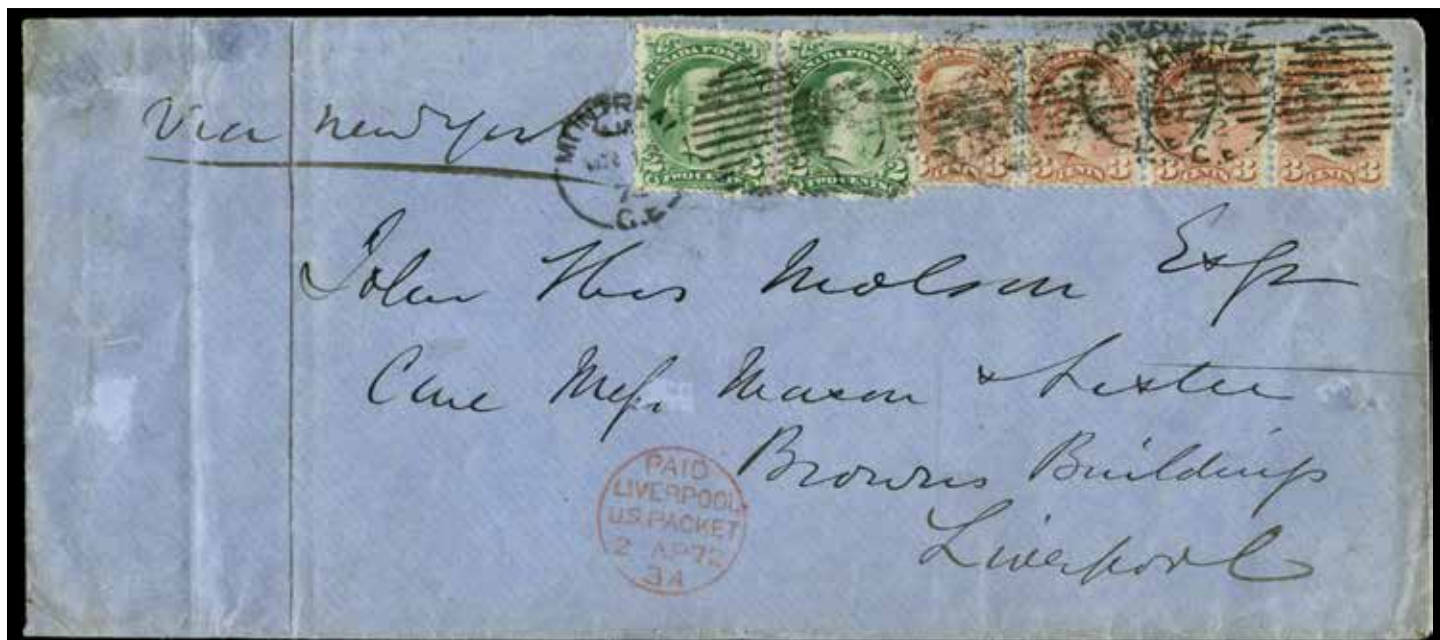 Via New York
MONTREAL
C.E.
CANADA POSTAGE
2 TWO CENTS 2
CANADA POSTAGE
2 TWO CENTS 2
3 CENTS 3
3 CENTS 3
3 CENTS 3
3 CENTS 3
John Thos Molson Esqr
Care Messr. Mason & Lister
Browns Buildings
Liverpool
PAID
LIVERPOOL
U.S. PACKET
2 AP 72
3A